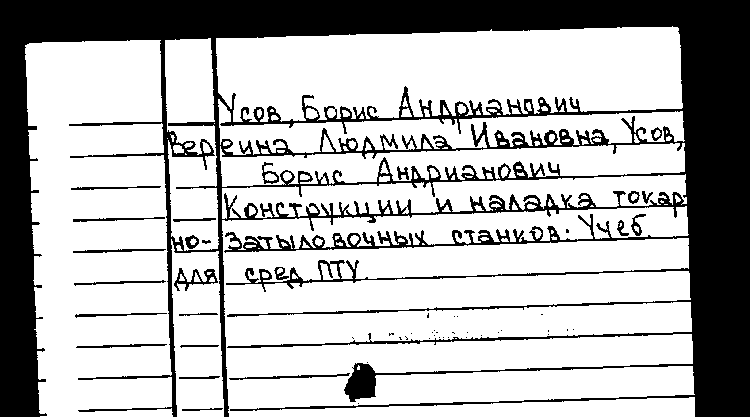 Усов, Борис Андрианович
Вереина, Людмила Ивановна, Усов,
Борис Андрианович
Конструкции и наладка токар-
но-затыловочных станков: Учеб.
для сред. ПТУ.